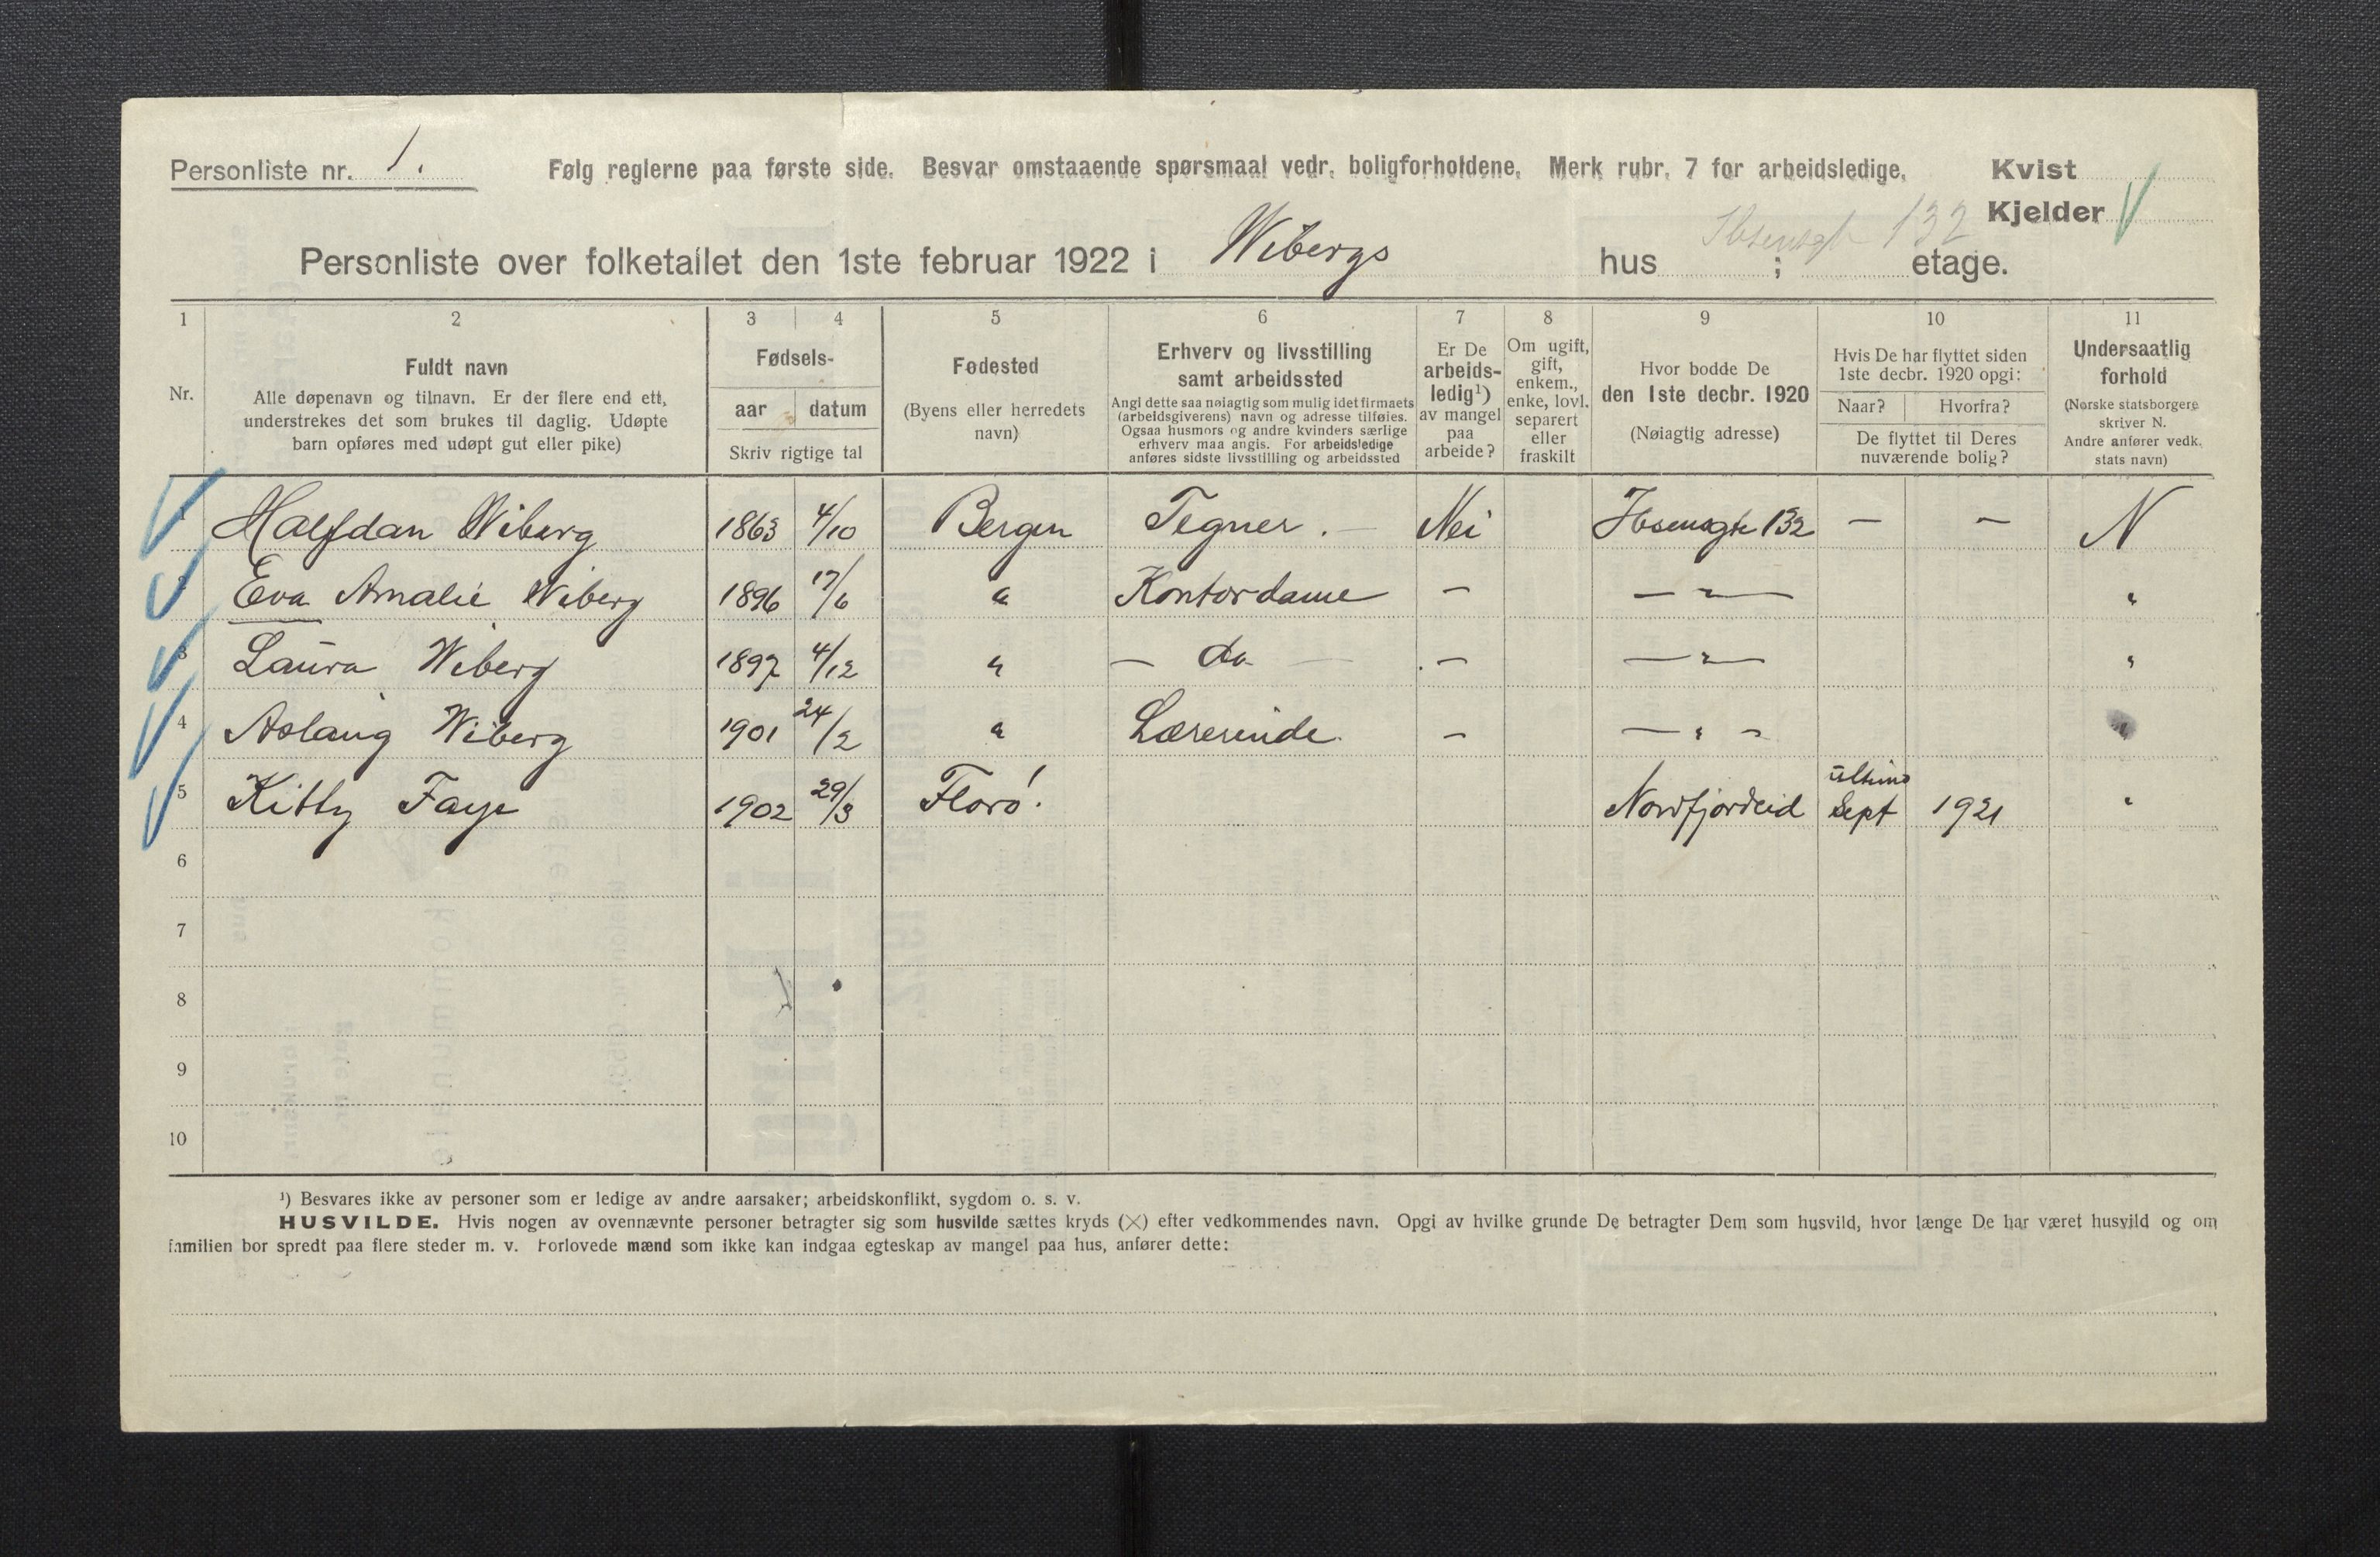 Personliste nr. 1. Følg reglerne paa første side. Besvar omstaaende spørsmaal vedr. boligforholdene. Merk rubr. 7 for arbeidsledige. Kvist
Kjelder
Ibsensgt 132
Personliste over folketallet den 1ste februar 1922 i Wibergs hus ; etage.
1 2 3 4 5 6 7 8 9 10 11
Nr.
Fuldt navn
Alle døpenavn og tilnavn. Er der flere end ett,
understrekes det som brukes til daglig. Udøpte
barn opføres med udøpt gut eller pike)
Fødsels-
aar datum
Skriv rigtige tal
Fødested
(Byens eller herredets
navn)
Erhverv og livsstilling
samt arbeidssted
Angi dette saa nøiagtig som mulig idet firmaets
(arbeidsgiverens) navn og adresse tilføies.
Ogsaa husmors og andre kvinders særlige
erhverv maa angis. For arbeidsledige
anføres sidste livsstilling og arbeidssted
Er De
arbeids-
ledig¹)
av mangel
paa
arbeide?
Om ugift,
gift,
enkem.,
enke, lovl.
separert
eller
fraskilt
Hvor bodde De
den 1ste decbr. 1920
(Nøiagtig adresse)
Hvis De har flyttet siden
1ste decbr. 1920 opgi:
Naar? Hvorfra?
De flyttet til Deres
nuværende bolig?
Undersaatlig
forhold
(Norske statsborgere
skriver N.
Andre anfører vedk.
stats navn)
1 Halfdan Wiberg 1863 4/10 Bergen Tegner. — Nei Ibsensgt 132 — — N
2 Eva Amalie Wiberg 1896 17/6 " Kontordame — — " — "
3 Laura Wiberg 1897 4/12 " — do — — — " — "
4 Aslaug Wiberg 1901 24/2 " Lærerinde. — — " — "
5 Kitty Faye 1902 29/3 Florø. Nordfjordeid ultimo Sept 1921 "
6
7
8
9
10
¹) Besvares ikke av personer som er ledige av andre aarsaker; arbeidskonflikt, sygdom o. s. v.
HUSVILDE. Hvis nogen av ovennævnte personer betragter sig som husvilde sættes kryds (×) efter vedkommendes navn. Opgi av hvilke grunde De betragter Dem som husvild, hvor længe De har været husvild og om
familien bor spredt paa flere steder m. v. Forlovede mænd som ikke kan indgaa egteskap av mangel paa hus, anfører dette: